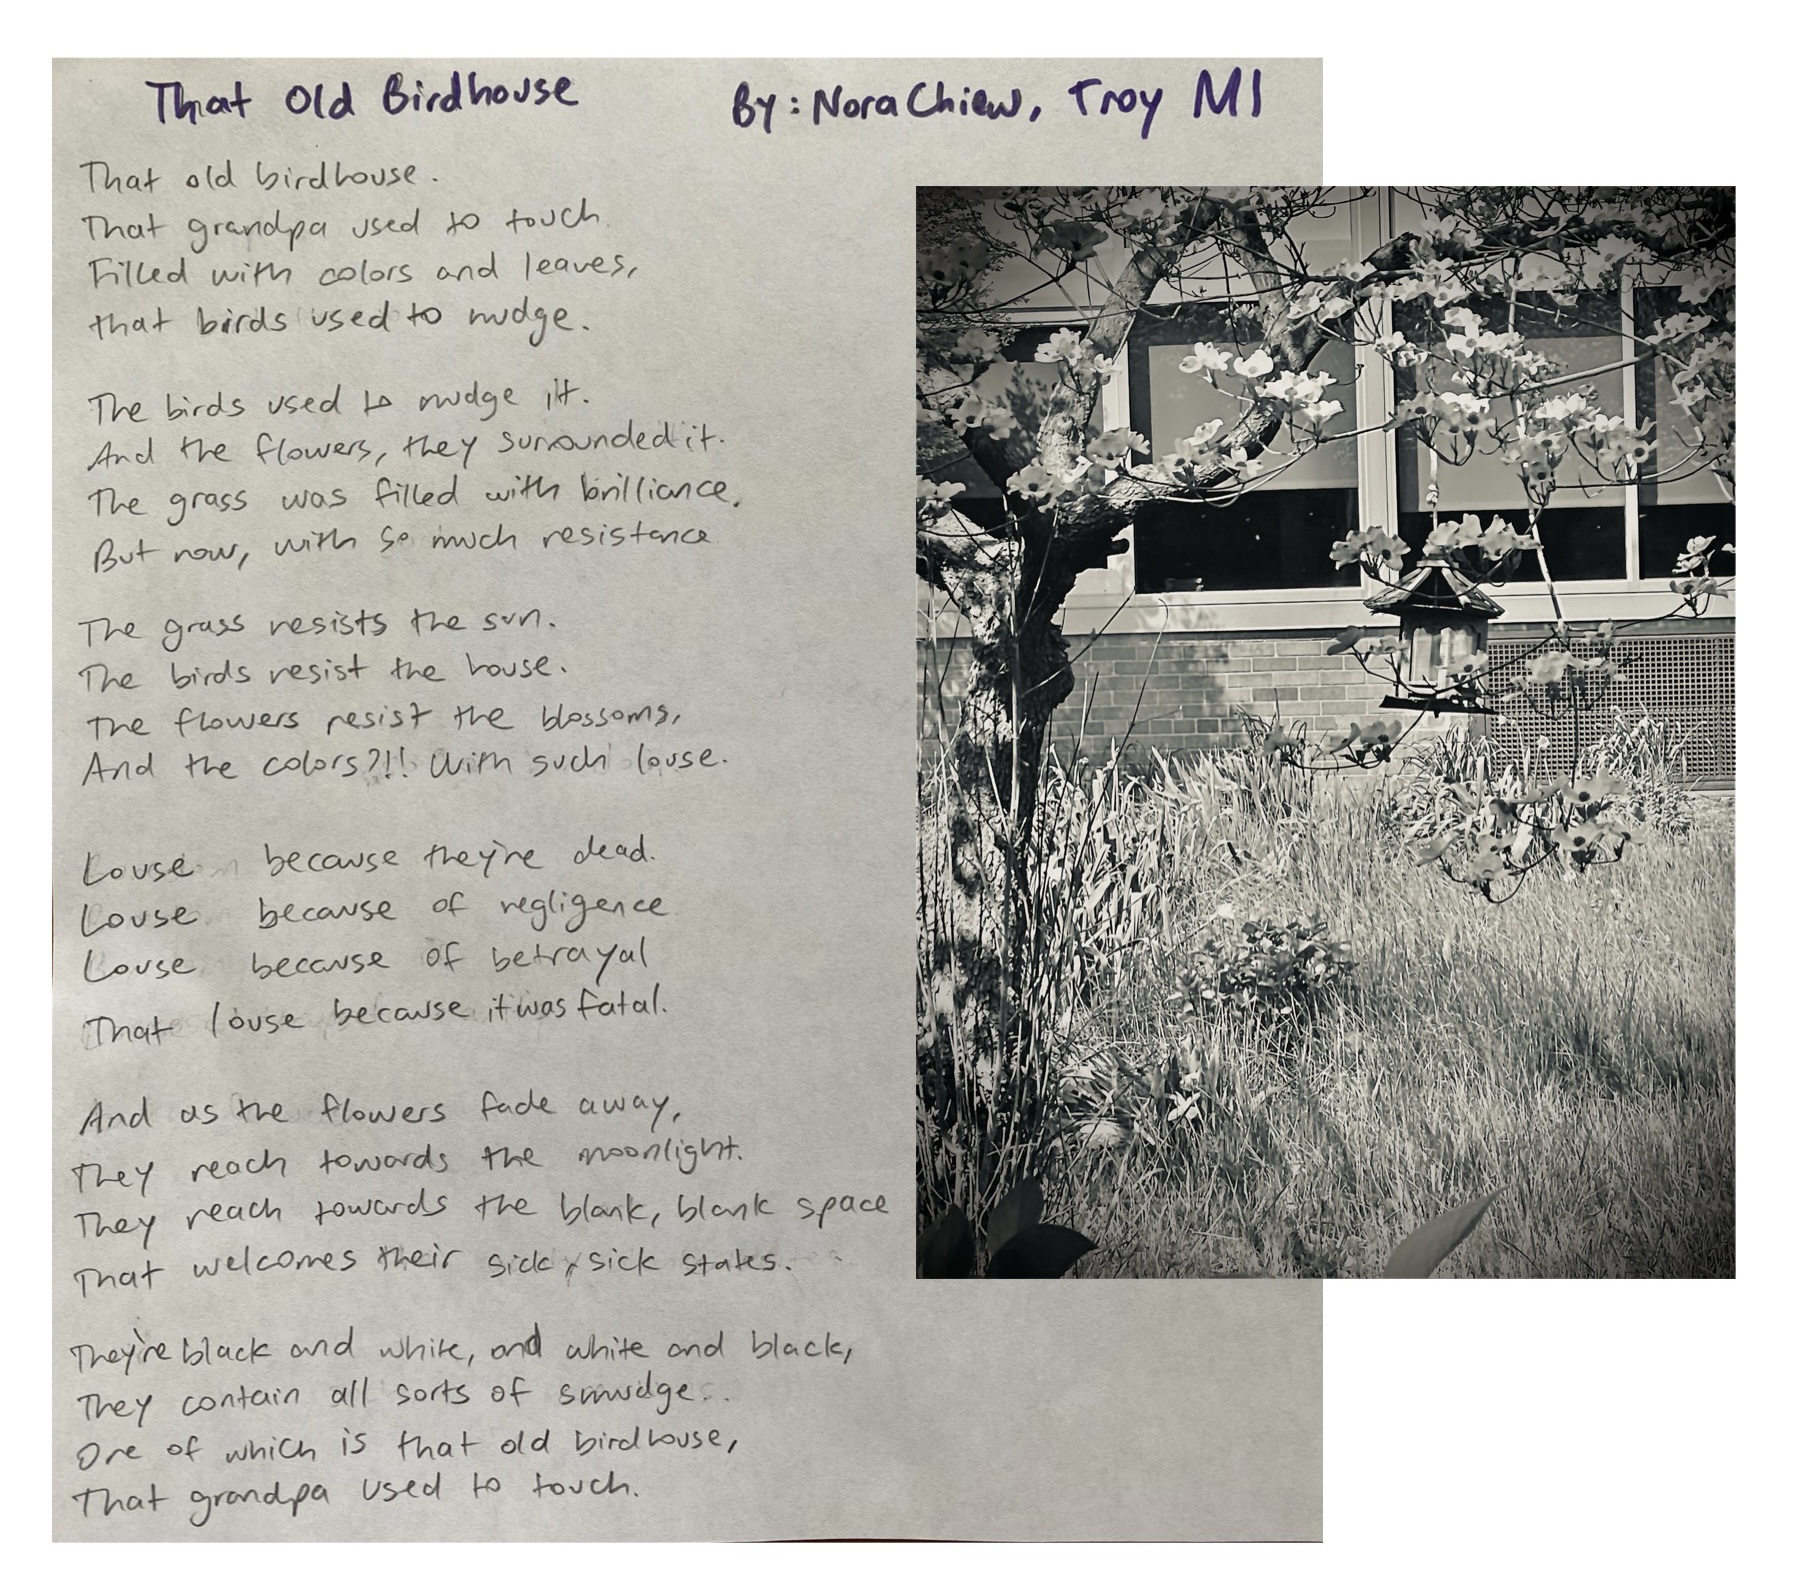 That Old Birdhouse
By: Nora Chiew, Troy MI
That old birdhouse.
That grandpa used to touch
Filled with colors and leaves,
that birds used to nudge.
The birds used to nudge it.
And the flowers, they surrounded it.
The grass was filled with brilliance.
But now, with so much resistance
The grass resists the sun.
The birds resist the house.
The flowers resist the blossoms,
And the colors?!! With such louse.
Louse because they're dead.
Louse because of negligence
Louse because of betrayal
That louse because it was fatal.
And as the flowers fade away,
They reach towards the moonlight.
They reach towards the blank, blank space
That welcomes their sick, sick states.
They're black and white, and white and black,
They contain all sorts of smudge..
One of which is that old birdhouse,
That grandpa used to touch.